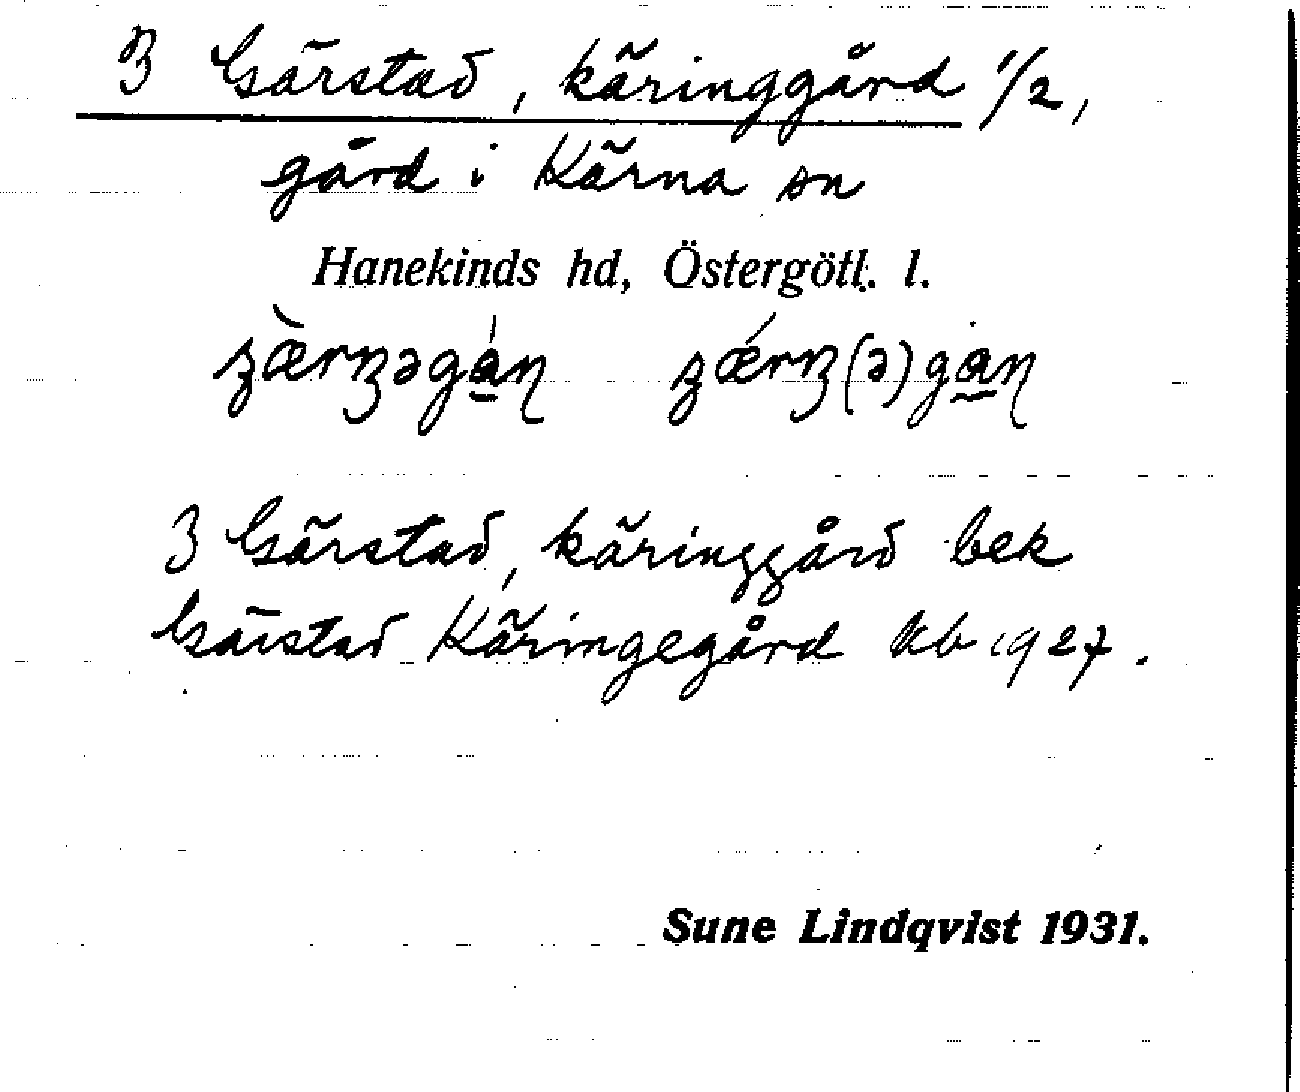 3 Gärstad, käringgård 1/2,
gård i Kärna sn
Hanekinds hd, Östergötl. l.
3 Gärstad, käringgård bek
Gärstad Käringegård kb 1927.
Sune Lindqvist 1931.